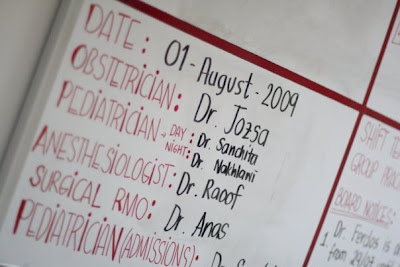 DATE: 01-August-2009
OBSTETRICIAN: Dr. Jozsa
PEDIATRICIAN → DAY: Dr. Sanchita
NIGHT: Dr. Nakhlawi
ANESTHESIOLOGIST: Dr. Raoof
SURGICAL RMO: Dr. Anas
PEDIATRICIAN (ADMISSIONS): Dr.
SHIFT
GROUP
BOARD NOTICES:
1. Dr. Ferdos is
from 29/07